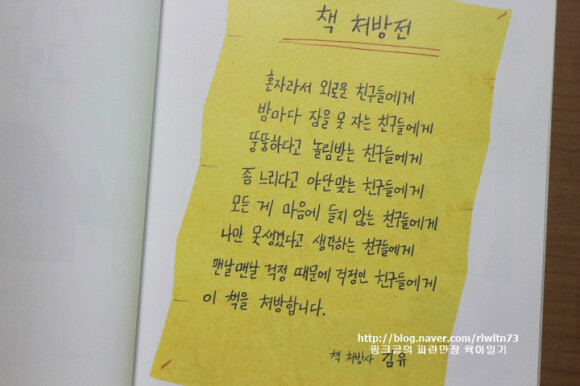 책 처방전
혼자라서 외로운 친구들에게
밤마다 잠을 못 자는 친구들에게
뚱뚱하다고 놀림받는 친구들에게
좀 느리다고 야단맞는 친구들에게
모든 게 마음에 들지 않는 친구들에게
나만 못생겼다고 생각하는 친구들에게
맨날맨날 걱정 때문에 걱정인 친구들에게
이 책을 처방합니다.
책 처방사 김유
http://blog.naver.com/rlwltn73
핑크곰의 파란만장 육아일기